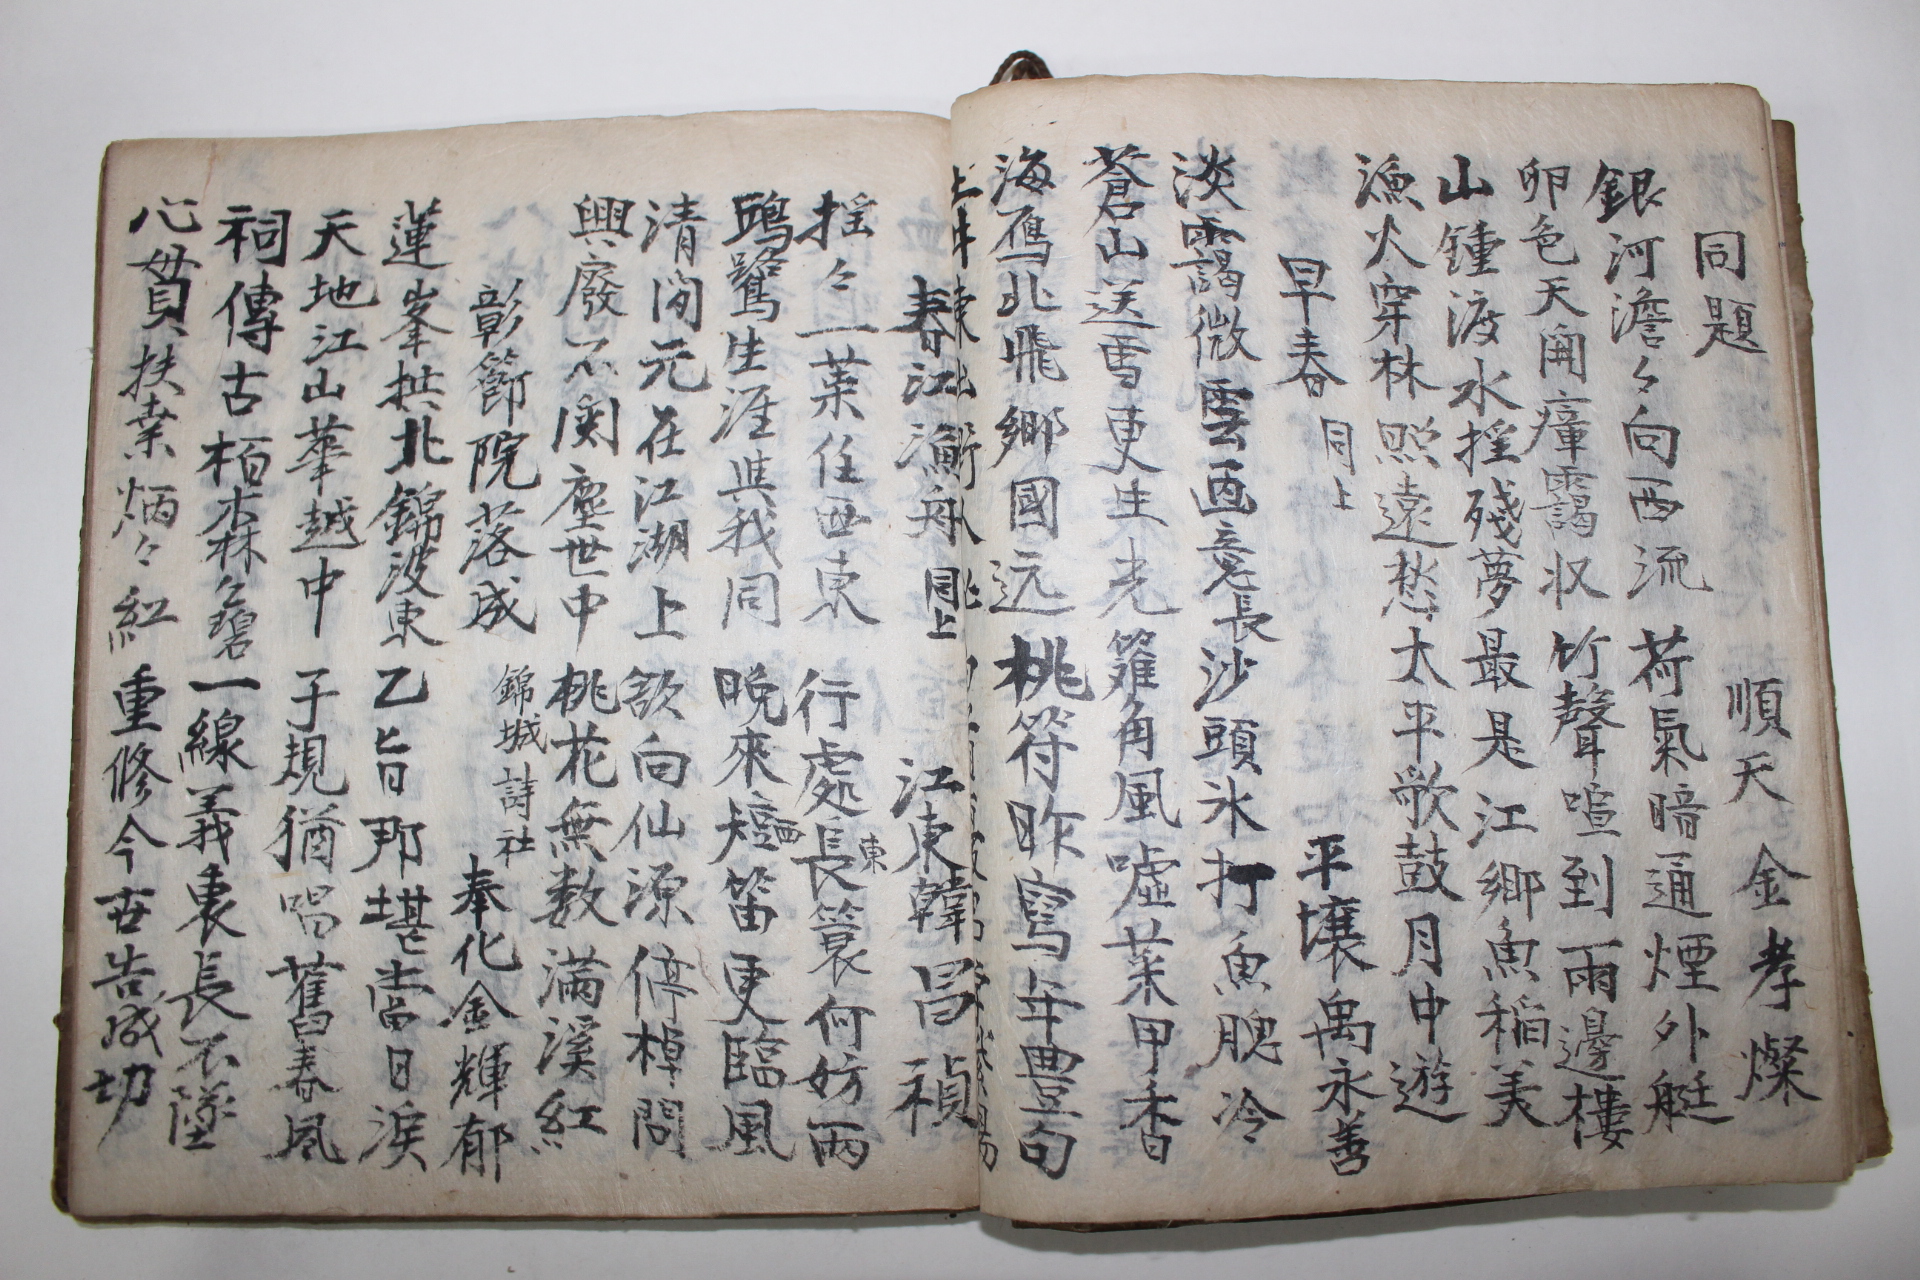 同題 順天 金孝燦
銀河澹々向西流 荷氣暗通煙外艇
卵色天開瘴靄収 竹聲喧到雨邊樓
山鍾渡水搖殘夢 最是江鄉魚稲美
漁火穿林照遠愁 太平歌鼓月中遊
早春 同上 平壤 禹永善
淡靄微雲画意長 沙頭氷打魚腮冷
蒼山送雪更生光 籬角風噓菜甲香
海鴈北飛鄉國远 桃符昨寫年豊句
春江漁舟 同上 江東 韓昌禎
搖々一葉任西東 行處長簑何妨雨
東
鷗鷺生涯與我同 晩來短笛更臨風
西
清閒元在江湖上 欲向仙源停棹問
興廢不関塵世中 桃花無数滿溪紅
彰節院落成 錦城詩社 奉化 金輝郁
蓮峯拱北錦波東 乙旨那堪當日淚
天地江山華越中 子規猶唱舊春風
祠傳古栢森々碧 一線義裏長不墜
心貫扶業炳々紅 重修今古告成功